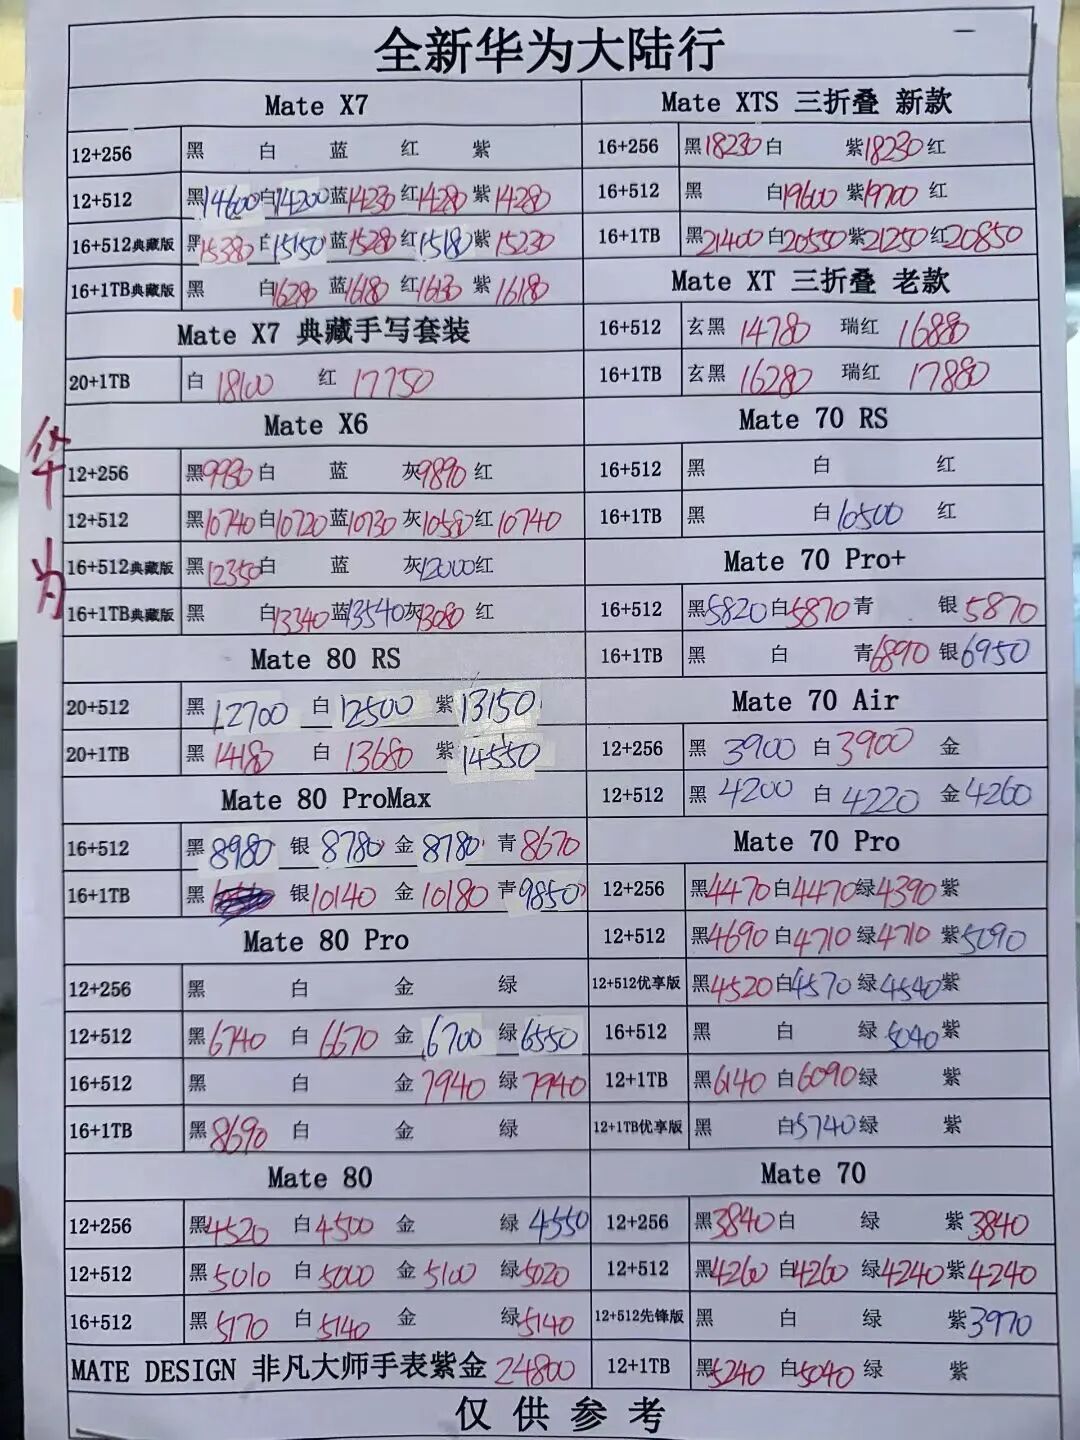 全新华为大陆行
Mate X7
12+256 黑 白 蓝 红 紫
12+512 黑14600 白14200 蓝14230 红14280 紫14280
16+512典藏版 黑15380 白15150 蓝15280 红15180 紫15230
16+1TB典藏版 黑 白16280 蓝16180 红16130 紫16180
Mate X7 典藏手写套装
20+1TB 白 18100 红 17750
Mate X6
12+256 黑9980 白 蓝 灰9890 红
12+512 黑10740 白10720 蓝10730 灰10580 红10740
16+512典藏版 黑12350 白 蓝 灰12000 红
16+1TB典藏版 黑 白13340 蓝13540 灰13080 红
Mate 80 RS
20+512 黑 12700 白 12500 紫 13150
20+1TB 黑 14180 白 13680 紫 14550
Mate 80 ProMax
16+512 黑 8980 银 8780 金 8780 青 8670
16+1TB 黑 银 10140 金 10180 青 9850
Mate 80 Pro
12+256 黑 白 金 绿
12+512 黑6740 白 6670 金 6700 绿 6550
16+512 黑 白 金 7940 绿 7940
16+1TB 黑8690 白 金 绿
Mate 80
12+256 黑4520 白4500 金 绿 4550
12+512 黑 5010 白 5000 金 5100 绿5020
16+512 黑 5170 白 5140 金 绿5140
MATE DESIGN 非凡大师手表紫金 24800
Mate XTS 三折叠 新款
16+256 黑18230 白 紫18230 红
16+512 黑 白19600 紫19700 红
16+1TB 黑21400 白20550 紫21250 红20850
Mate XT 三折叠 老款
16+512 玄黑 14780 瑞红 16880
16+1TB 玄黑 16280 瑞红 17880
Mate 70 RS
16+512 黑 白 红
16+1TB 黑 白10500 红
Mate 70 Pro+
16+512 黑5820 白5870 青 银 5870
16+1TB 黑 白 青6890 银6950
Mate 70 Air
12+256 黑 3900 白 3900 金
12+512 黑 4200 白 4220 金 4260
Mate 70 Pro
12+256 黑4470 白4470 绿4390 紫
12+512 黑4690 白4710 绿4710 紫5090
12+512优享版 黑4520 白4570 绿4540 紫
16+512 黑 白 绿 5040 紫
12+1TB 黑6140 白6090 绿 紫
12+1TB优享版 黑 白5740 绿 紫
Mate 70
12+256 黑3840 白 绿 紫 3840
12+512 黑4260 白4260 绿4240 紫4240
12+512先锋版 黑 白 绿 紫3970
12+1TB 黑5240 白5040 绿 紫
仅供参考
华为